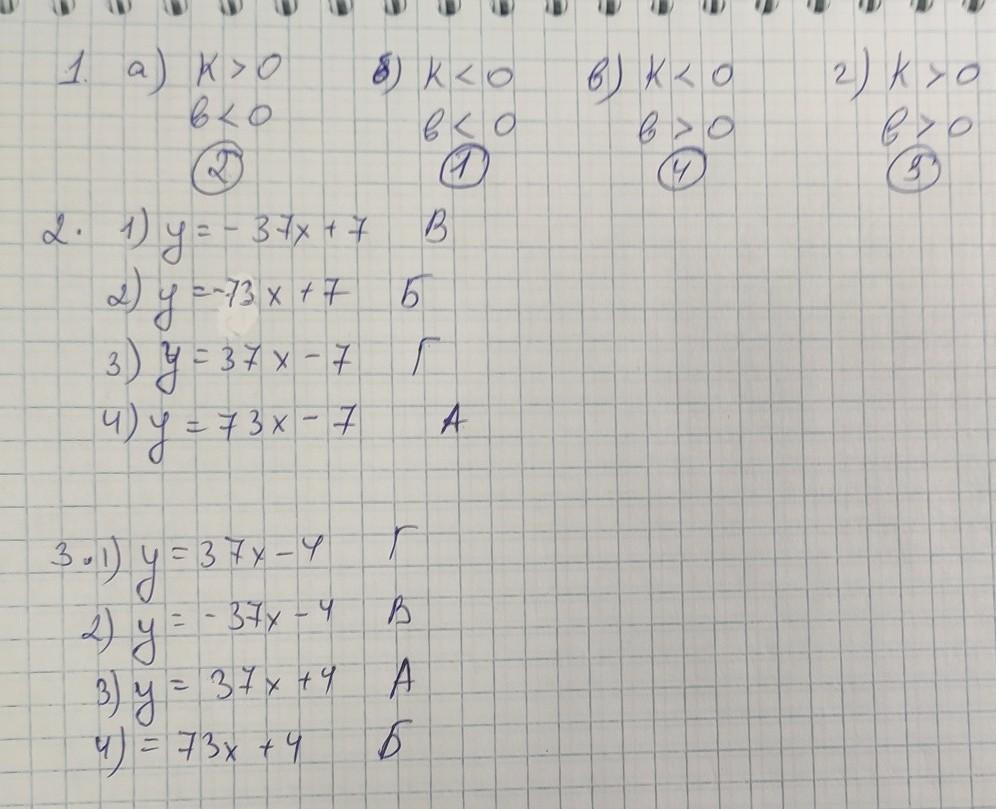 1. а) K > 0 б) K < 0 в) K < 0 г) K > 0
в < 0 в < 0 в > 0 в > 0
2 1 4 3
2. 1) y = - 37x + 7 В
2) y = -73x + 7 Б
3) y = 37x - 7 Г
4) y = 73x - 7 А
3. 1) y = 37x - 4 Г
2) y = - 37x - 4 В
3) y = 37x + 4 А
4) = 73x + 4 Б